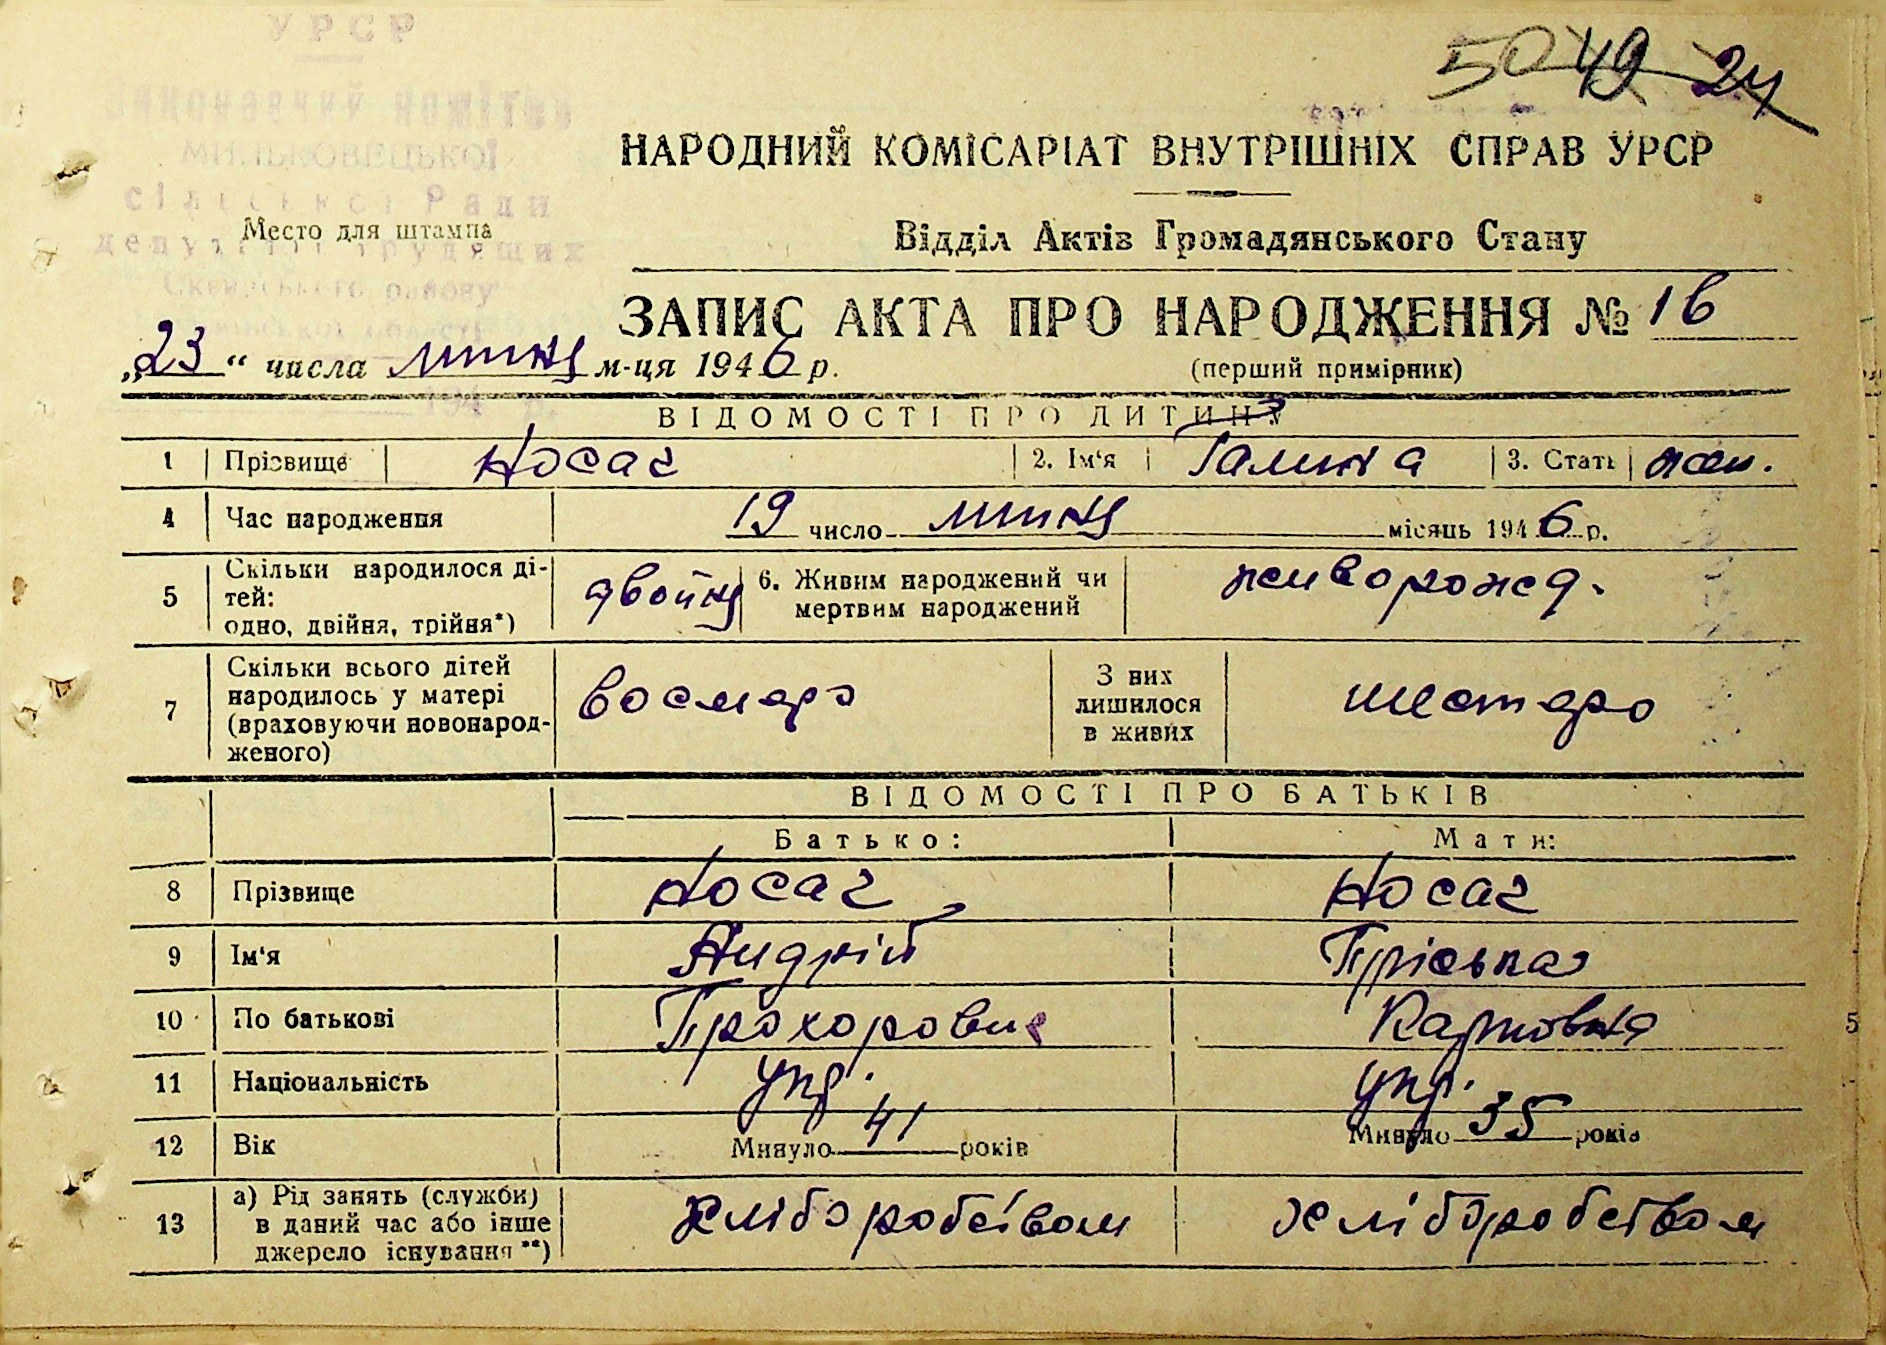 50 49 24
УРСР
Виконавчий комітет
МИЛЬКОВЕЦЬКОЇ
сільської Ради
депутатів трудящих
НАРОДНИЙ КОМІСАРІАТ ВНУТРІШНІХ СПРАВ УРСР
Место для штампа
Відділ Актів Громадянського Стану
ЗАПИС АКТА ПРО НАРОДЖЕННЯ № 16
„23“ числа липня м-ця 1946 р. (перший примірник)
ВІДОМОСТІ ПРО ДИТИНУ
1 Прізвище Носач 2. Ім'я Галина 3. Стать жен.
4 Час народження 19 число липня місяць 1946 р.
5 Скільки народилося ді-
тей:
одно, двійня, трійня*) двойня 6. Живим народжений чи
мертвим народжений живорожд.
7 Скільки всього дітей
народилось у матері
(враховуючи новонарод-
женого) восмеро З них
лишилося
в живих шестеро
ВІДОМОСТІ ПРО БАТЬКІВ
Батько: Мати:
8 Прізвище Носач Носач
9 Ім'я Андрій Пріська
10 По батькові Прохорович Карповна
11 Національність укр. укр.
12 Вік Минуло 41 років Минуло 35 років
13 а) Рід занять (служби)
в даний час або інше
джерело існування**) хліборобством хліборобством
5